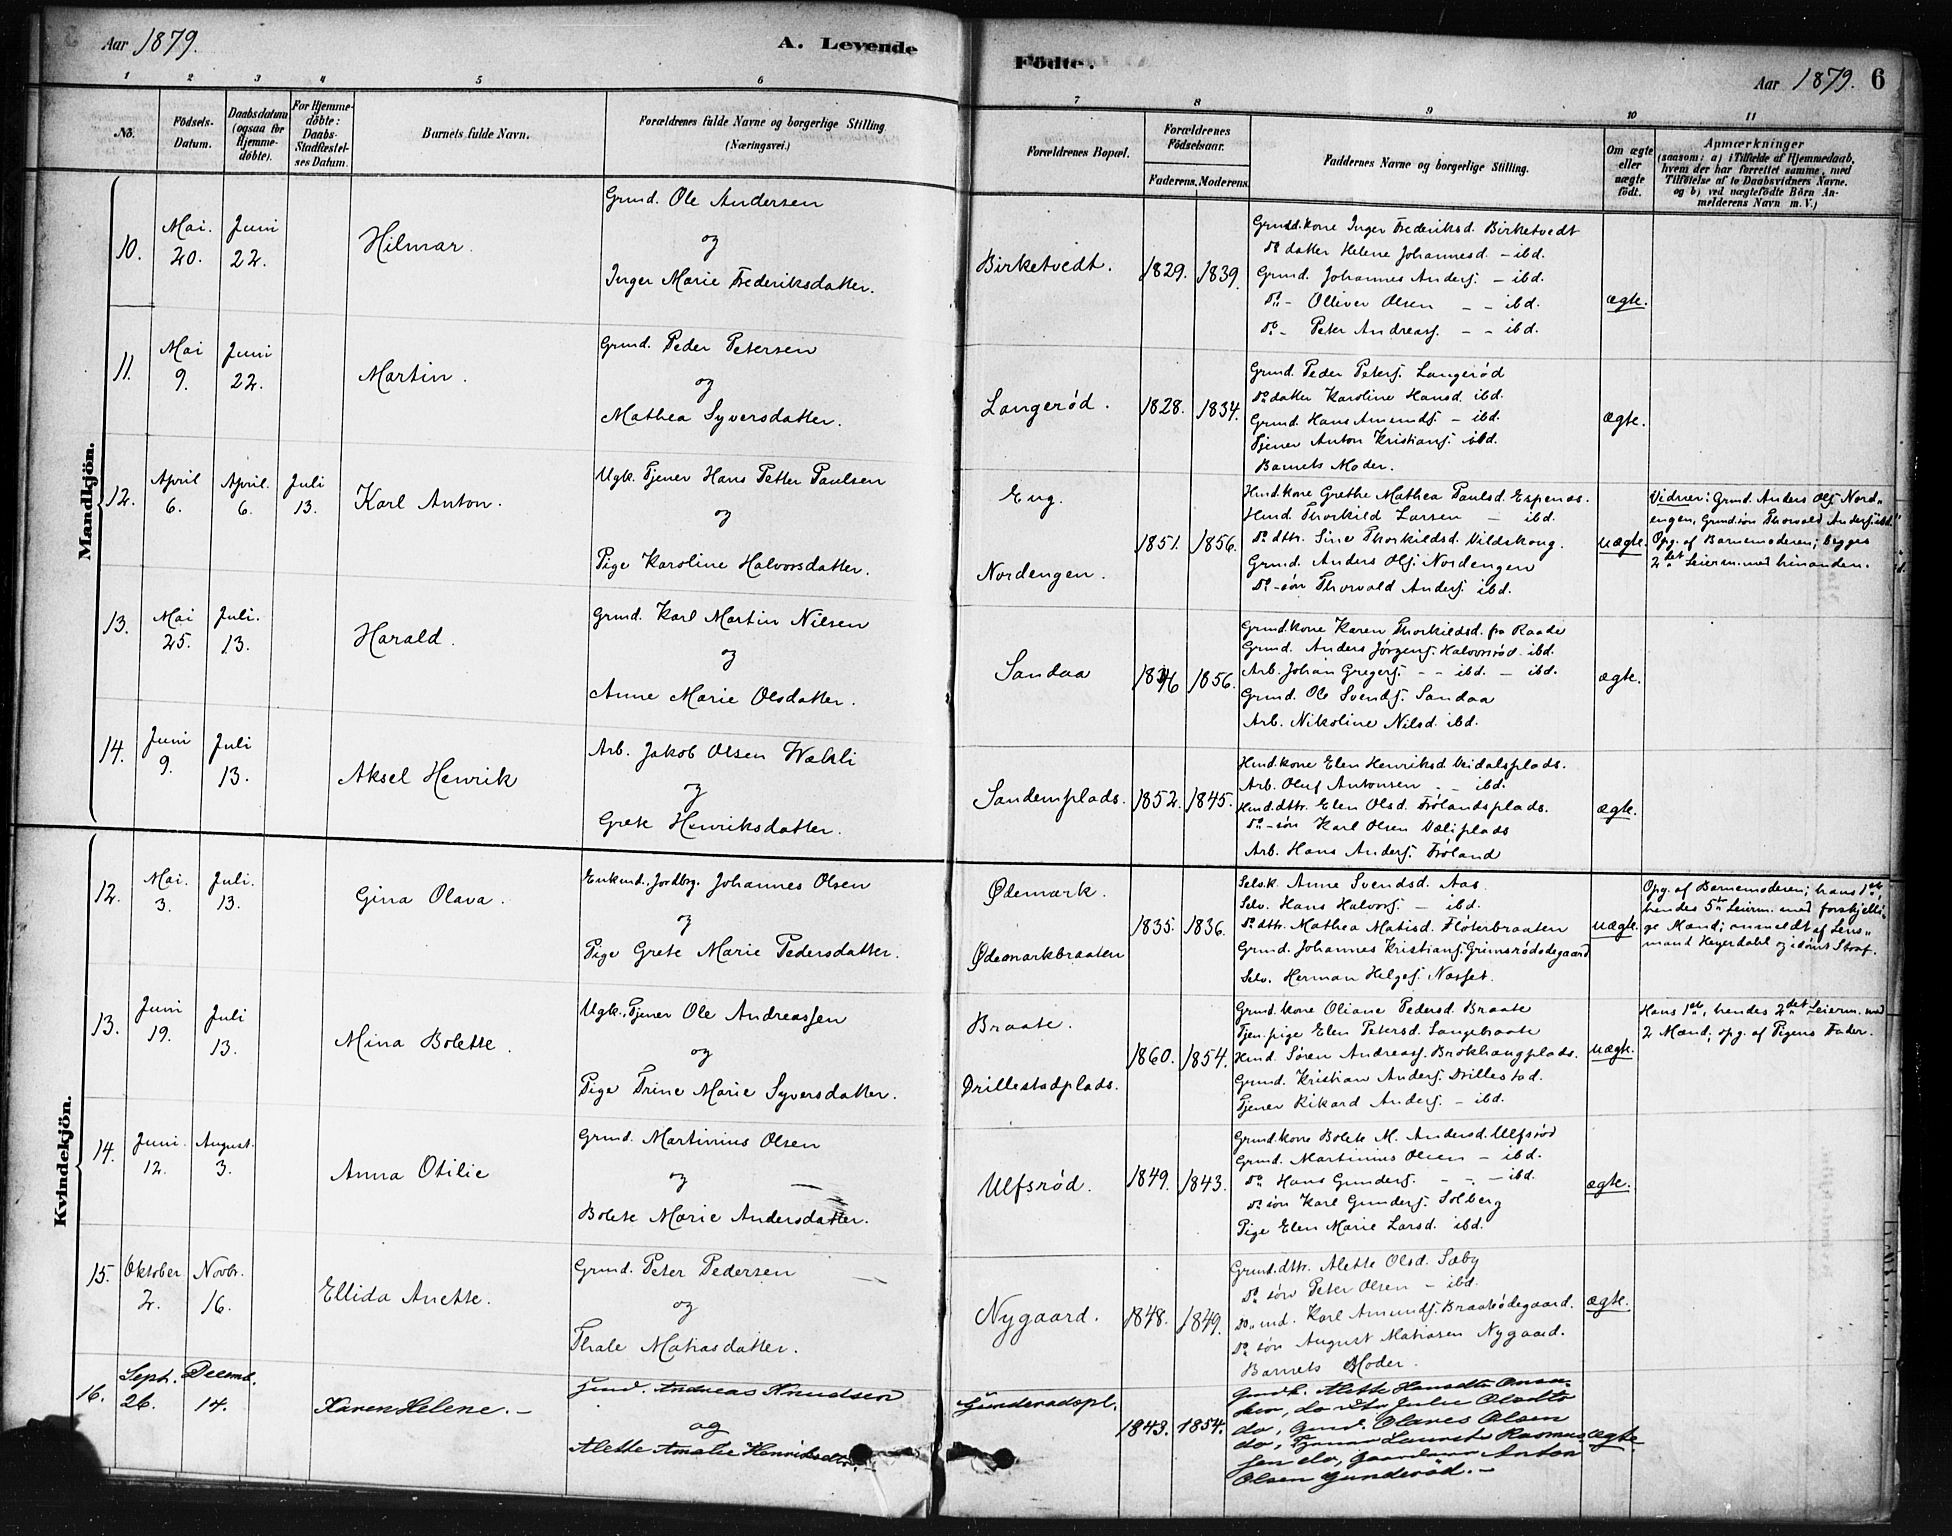 Aar 1879.
A. Levende Födte.
Aar 1879. 6
1 2 3 4 5 6 7 8 9 10 11
No.
Födsels-Datum.
Daabsdatum (ogsaa for Hjemmedöbte).
For Hjemmedöbte: Daabs-Stadfæstelses Datum.
Barnets fulde Navn.
Forældrenes fulde Navne og borgerlige Stilling (Næringsvei.)
Forældrenes Bopæl.
Forældrenes Födselsaar.
Faderens. Moderens.
Faddernes Navne og borgerlige Stilling.
Om ægte eller uægte födt.
Apmærkninger
(saasom: a) i Tilfælde af Hjemmedaab,
hvem der har forrettet samme, med
Tilföielse af to Daabsvidners Navne.
og b) ved uægtefödte Börn An-
melderens Navn m. V.)
Mandkjön.
10. Mai. 20. Juni 22. Hilmar.
Grund. Ole Andersen
og
Inger Marie Frederiksdatter.
Birketvedt. 1829. 1839.
Grundkone Inger Frederiksd. Birketvedt
Do datter Helene Johannesd. - ibd.
Grund. Johannes Anders. - ibd.
Do - Olliver Olsen - - ibd.
Do - Peter Andreas. - - ibd.
ægte.
11. Mai 9. Juni 22. Martin.
Grund. Peder Petersen
og
Mathea Syversdatter.
Langerød. 1828. 1834.
Grund. Peder Peters. Langerød
Do datter Karoline Hansd. ibd.
Grund. Hans Amunds. - ibd.
Tjener Anton Kristians. ibd.
Barnets Moder.
ægte.
12. April 6. April. 6. Juli 13. Karl Anton.
Ugk. Tjener Hans Petter Paulsen
og
Pige Karoline Halvorsdatter.
Eng.
Nordengen.
1851. 1856.
Hmd.kone Grethe Mathea Paulsd. Espenæs.
Hmd. Thorkild Larsen - ibd.
Do dttr. Sine Thorkildsd. Vildskoug.
Grund. Anders Ols. Nordengen
Do - søn Thorvald Anders. ibd.
uægte.
Vidner: Grund. Anders Ols. Nord-
engen, Grund.søn Thorvald Anders. ibd.
Opg. af Barnemoderen; begges
2det Leierm. med hinanden.
13. Mai 25. Juli. 13. Harald.
Grund. Karl Martin Nilsen
og
Anne Marie Olsdatter.
Sandaa 1856.
Grund.kone Karen Thorkildsd. fra Raade
Grund. Anders Jørgens. Halvorsrød. ibd.
Arb. Johan Gregers. - - ibd. - ibd.
Grund. Ole Svends. Sandaa
Arb. Nikoline Nilsd. ibd.
ægte.
14. Juni 9. Juli 13. Aksel Henrik
Arb. Jakob Olsen
og
Grete Henriksdatter.
Sandemplads. 1852. 1845.
Hmd.kone Elen Henriksd.
Arb. Oluf Antonsen - - ibd.
Hmd.dttr. Elen Olsd. Frølandsplads.
Do - søn Karl Olsen Væliplads
Arb. Hans Anders. Frøland
ægte.
Kvindekjön.
12. Mai. 3. Juli. 13. Gina Olava.
Enkmd., Jordbrg. Johannes Olsen
og
Pige Grete Marie Pedersdatter.
Ødemark.
Ødemarkbraaten
1835. 1836.
Selv.k. Anne Svendsd. Aas.
Selv. Hans Halvors. - ibd.
Do dttr. Mathea Matisd. Fløterbraaten
Grund. Johannes Kristians. Grimsrødødegaard
Selv. Herman Helges. Næsset.
uægte.
Opg. af Barnemoderen; hans 1ste,
hendes 5te Leierm. med forskjelli-
ge Mænd; anmeldt af Lens-
mand Heyerdahl og idømt Straf.
13. Juni 19. Juli 13. Mina Bolette.
Ugk., Tjener Ole Andreassen
og
Pige Trine Marie Syversdatter.
Braate.
Drillestadplads.
1860. 1854.
Grund.kone Oliane Pedersd. Braate
Tjen.pige Elen Petersd. Langbraate
Hmd. Søren Andreas. Brokhaugplads.
Grund. Kristian Anders. Drillestad.
Tjener Rikard Anders. - ibd.
uægte.
Hans 1ste, hendes 2det Leierm. med
2 Mænd; opg. af Pigens Fader.
14. Juni. 12. August. 3. Anna Otilie
Grund. Martinius Olsen
og
Bolete Marie Andersdatter.
Ulfsrød. 1849. 1843.
Grund.kone Bolete M. Andersd. Ulfsrød
Grund. Martinius Olsen - ibd.
Do Hans Gunders. - - - ibd.
Do søn Karl Gunders. Solberg
Pige Elen Marie Larsd. ibd.
ægte.
15. Oktober 2. Novbr. 16. Ellida Anette.
Grund. Peter Pedersen
og
Thale Matiasdatter.
Nygaard. 1848. 1849.
Grund.dttr. Alette Olsd. Sæby
Do søn Peter Olsen - ibd.
Do. md. Karl Amunds. Braatødegaard.
Do søn August Matiasen Nygaard.
Barnets Moder.
ægte.
16. Sept. 26. Decemb. 14. Karen Helene. -
Gmd. Andreas Knudsen
og
Alette Amalie Henriksdtr. -
Gunderødspl. 1843. 1854.
Gmdk. Alette Hansdtr
do, Gmd. Olaves Olsen
do, Tjener Laurits Rasmus-
sen do, Anton
Olsen Gunderød. -
ægte